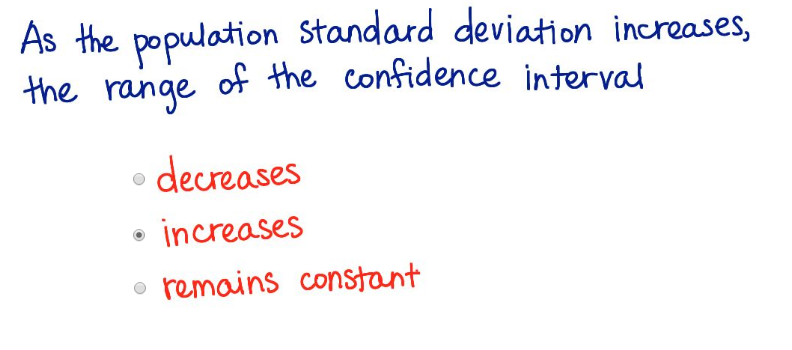 As the population standard deviation increases,
the range of the confidence interval
decreases
increases
remains constant